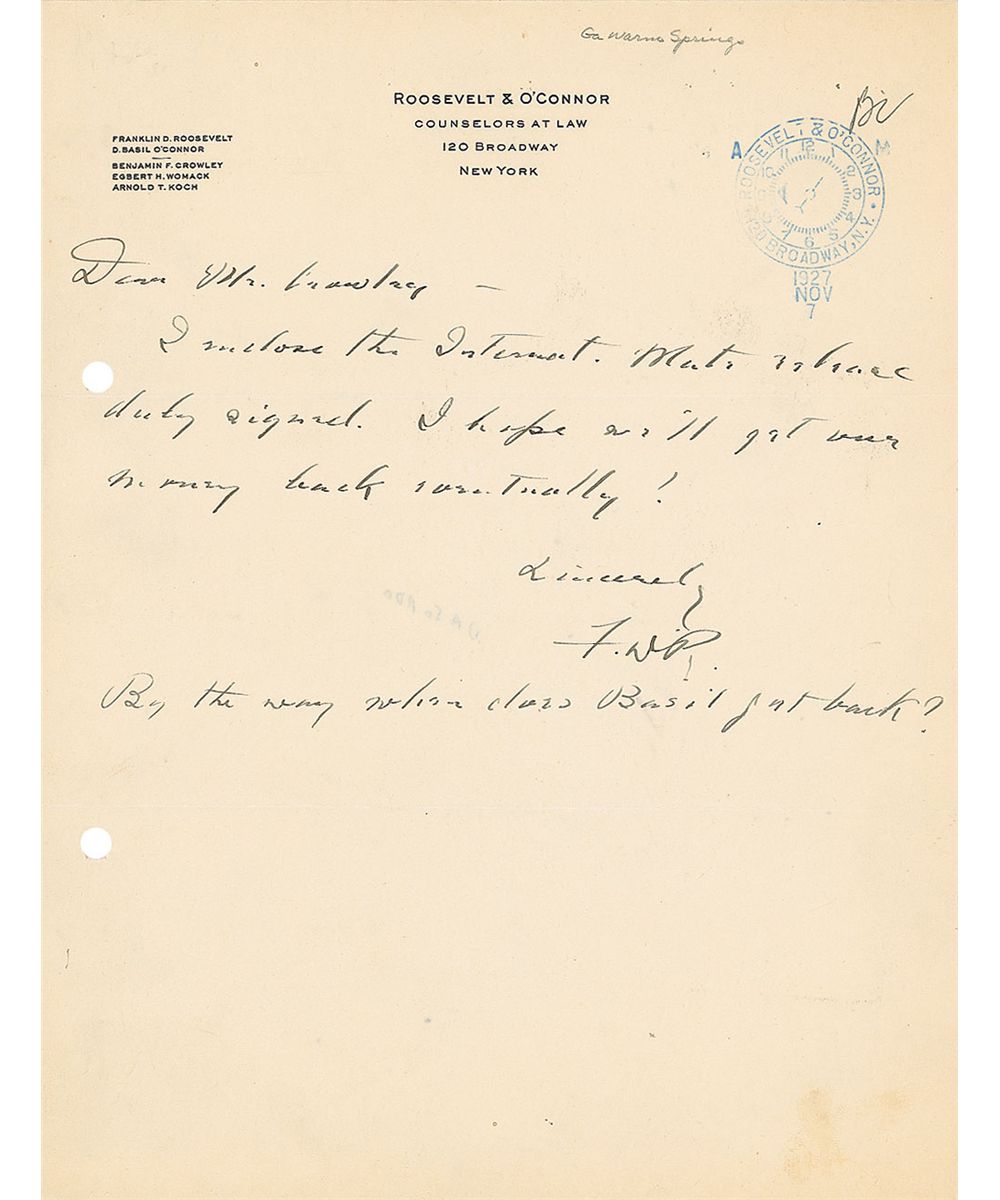 Ga Warm Springs
ROOSEVELT & O'CONNOR
COUNSELORS AT LAW
120 BROADWAY
NEW YORK
FRANKLIN D. ROOSEVELT
D. BASIL O'CONNOR
BENJAMIN F. CROWLEY
EGBERT H. WOMACK
ARNOLD T. KOCH
A M
ROOSEVELT & O'CONNOR
120 BROADWAY, N.Y.
12 1 2 3 4 5 6 7 10 11
1927
NOV
7
Dear Mr. Crowley –
I enclose the Internat. Mutr release
duly signed. I hope we'll get our
money back eventually!
Sincerely
F.D.R.
By the way when does Basil get back?